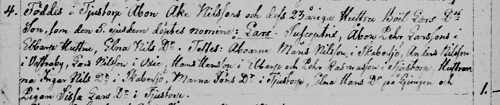 4. Föddes i Tjustorp Åbon Åke Nilssons och dess 23 åriga Hustru Boel Lars Dr
Son, som den 5. ejusdem döptes nomine: Lars. Susceptrix, Åbon Pehr Larssons i
Hustru, Elna Nils Dr. Testes: Åboarne Måns Nilsson i Skabersjö, Anders Nilsson
i Ostraby, Lars Nilsson i Oxie, Hans Hansson i och Pehr Rasmusson i Tjustorp. Hustrurna
Ingar Nils Dr i Skabersjö, Marna Jöns Dr i Tjustorp, Elna Hans Dr på och
Pigan Sissa Lars Dr i Tjustorp.
1.